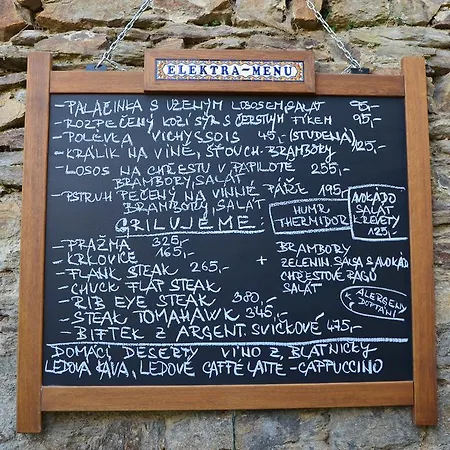 ELEKTRA-MENU
-PALAČINKA S UZENÝM LOSOSEM, SALÁT 95,-
-ROZPEČENÝ KOZÍ SÝR S ČERSTVÝM FÍKEM 95,-
-POLÉVKA VICHYSSOIS 45,- (STUDENÁ)
-KRÁLÍK NA VÍNĚ, ŠŤOUCH. BRAMBORY 125,-
-LOSOS NA CHŘESTU V PAPILOTĚ 255,-
BRAMBORY, SALÁT
-PSTRUH PEČENÝ NA VINNÉ PÁŘE 195,-
BRAMBORY, SALÁT
GRILUJEME:
HUMR THERMIDOR
AVOKÁDO
SALÁT
KREVETY
125,-
-PRAŽMA 325,-
-KRKOVICE 165,-
-FLANK STEAK 265,-
-CHUCK FLAP STEAK
-RIB EYE STEAK 380,-
-STEAK TOMAHAWK 345,-
-BIFTEK Z ARGENT. SVÍČKOVÉ 475,-
+
BRAMBORY
ZELENIN. SALSA S AVOKÁD
CHŘESTOVÉ RAGÚ
SALÁT
ALERGENY
K DOPTÁNÍ
DOMÁCÍ DESERTY VÍNO Z BLATNIČKY
LEDOVÁ KÁVA, LEDOVÉ CAFFÉ LATTE - CAPPUCCINO